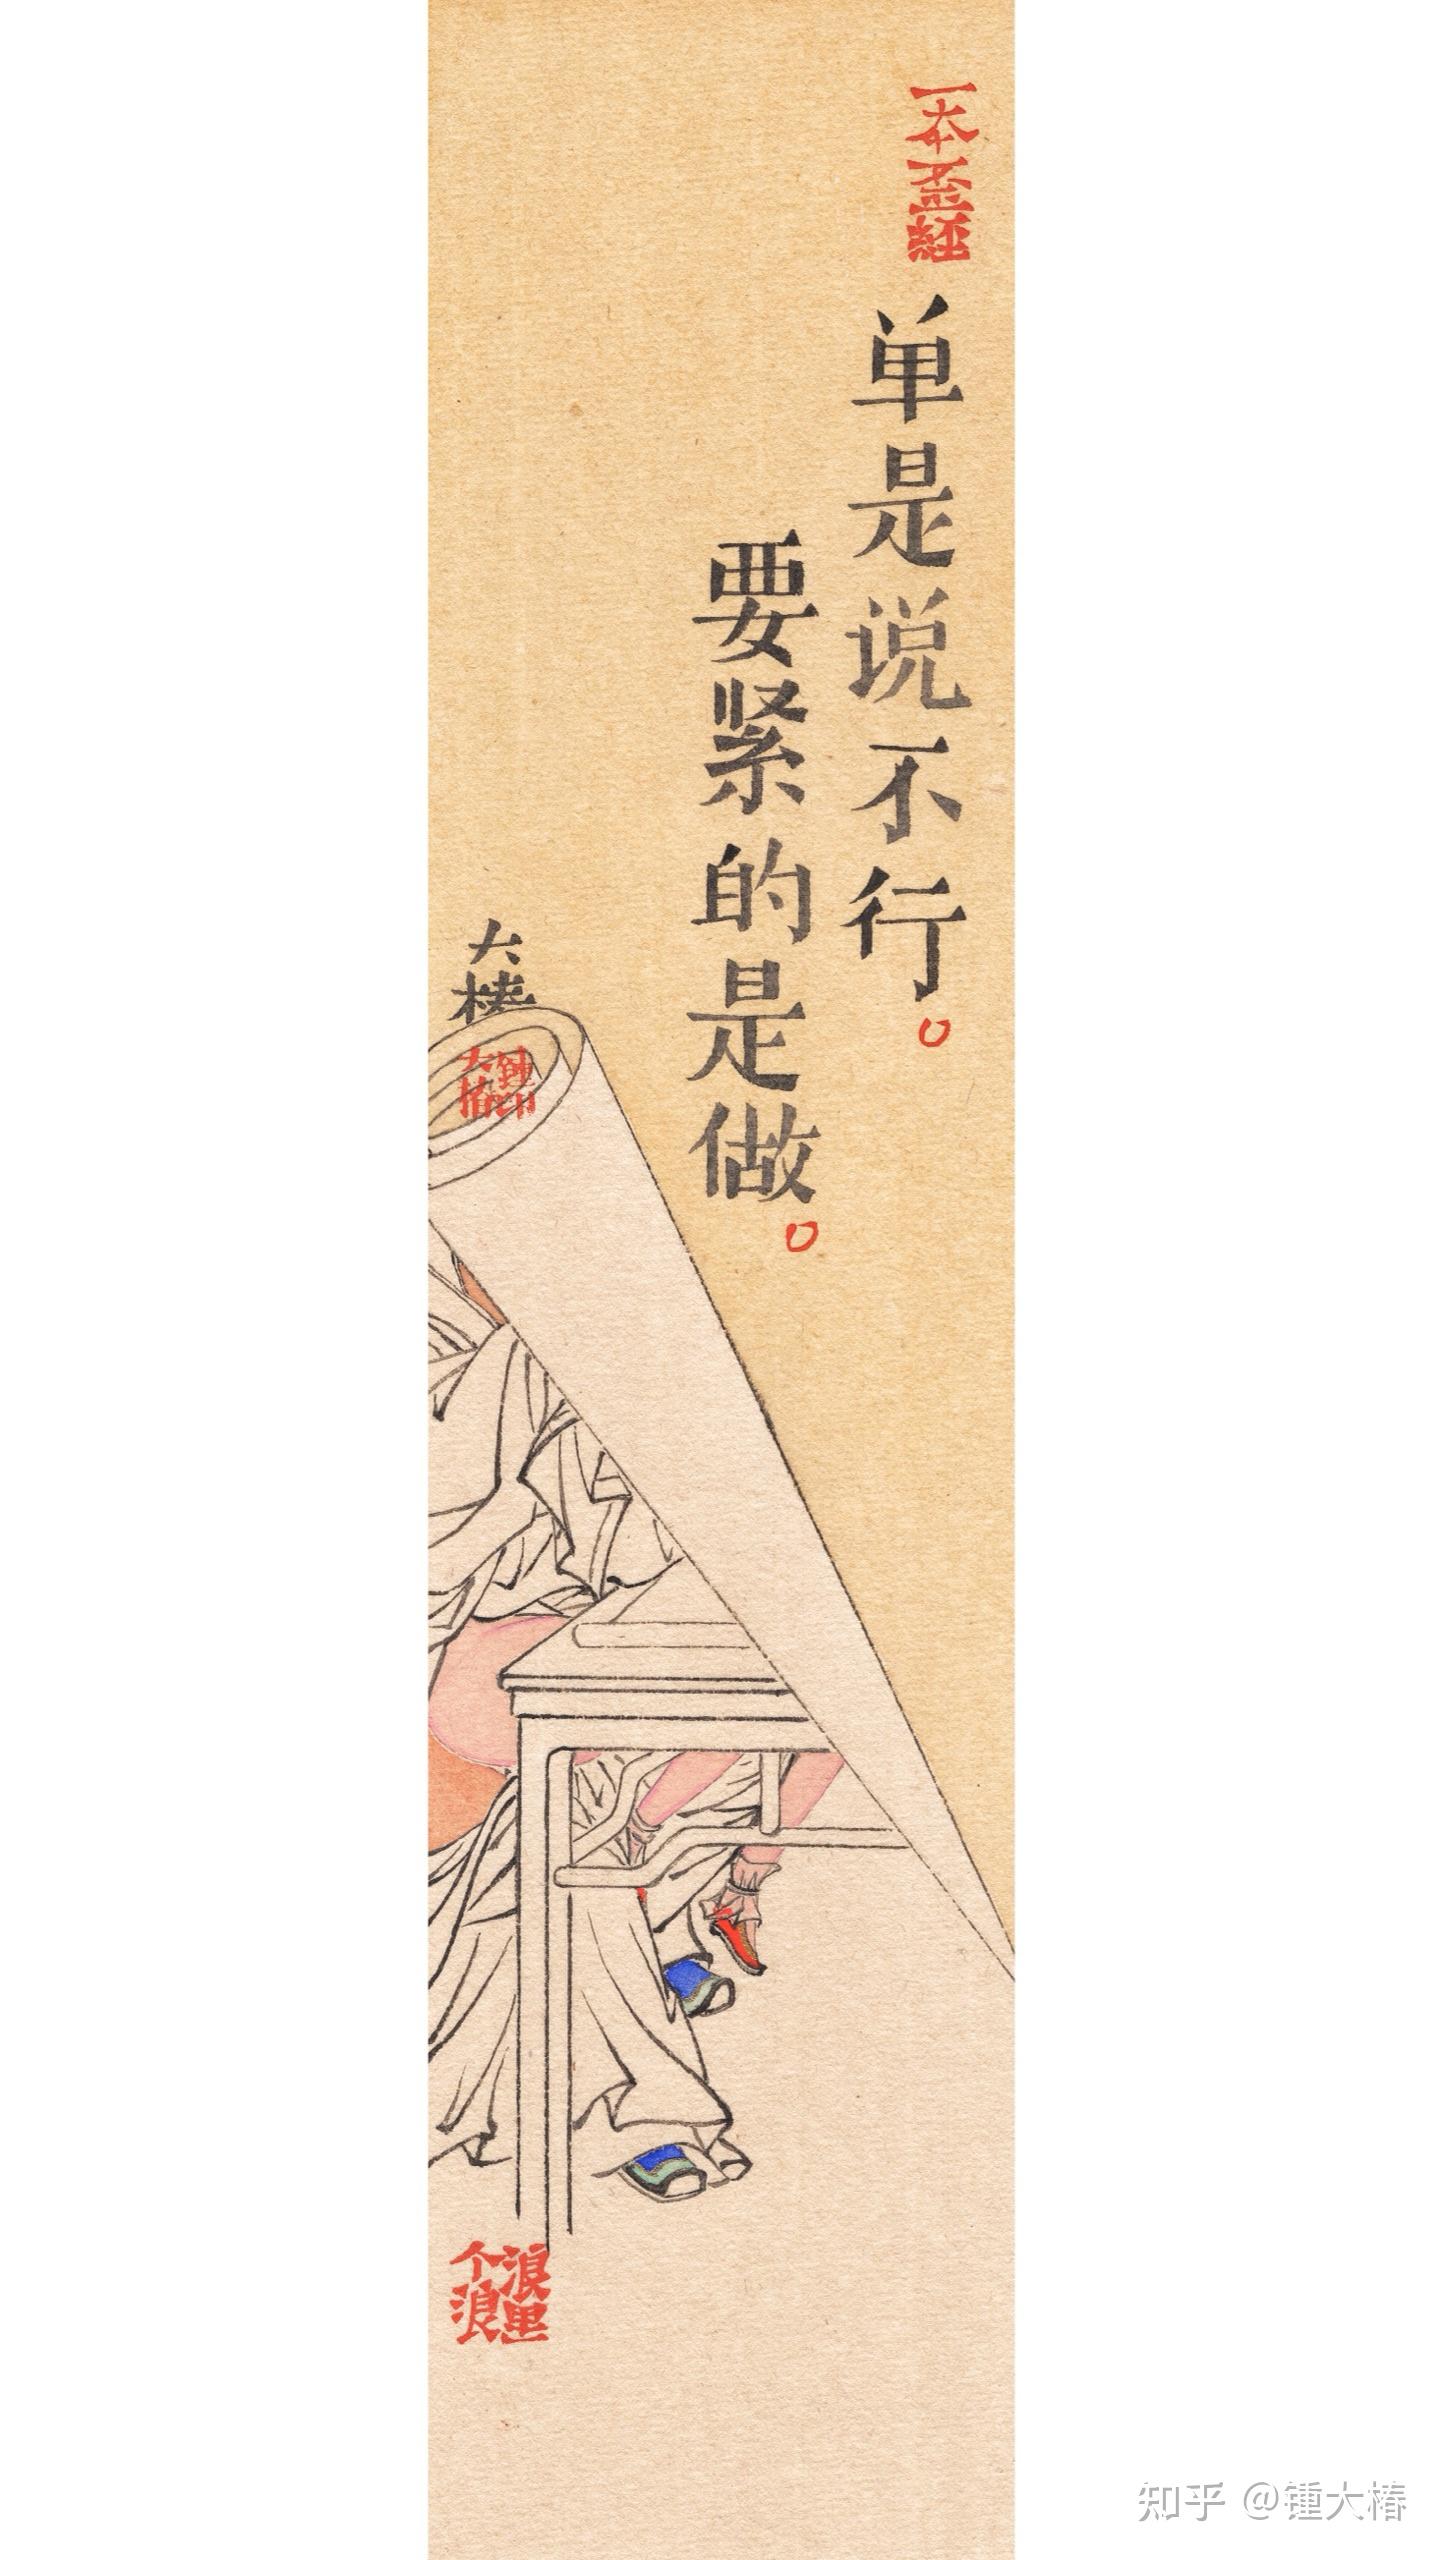 一本歪經
单是说不行。
要紧的是做。
大椿
鍾印
大椿
浪里
个浪
知乎 @锺大椿